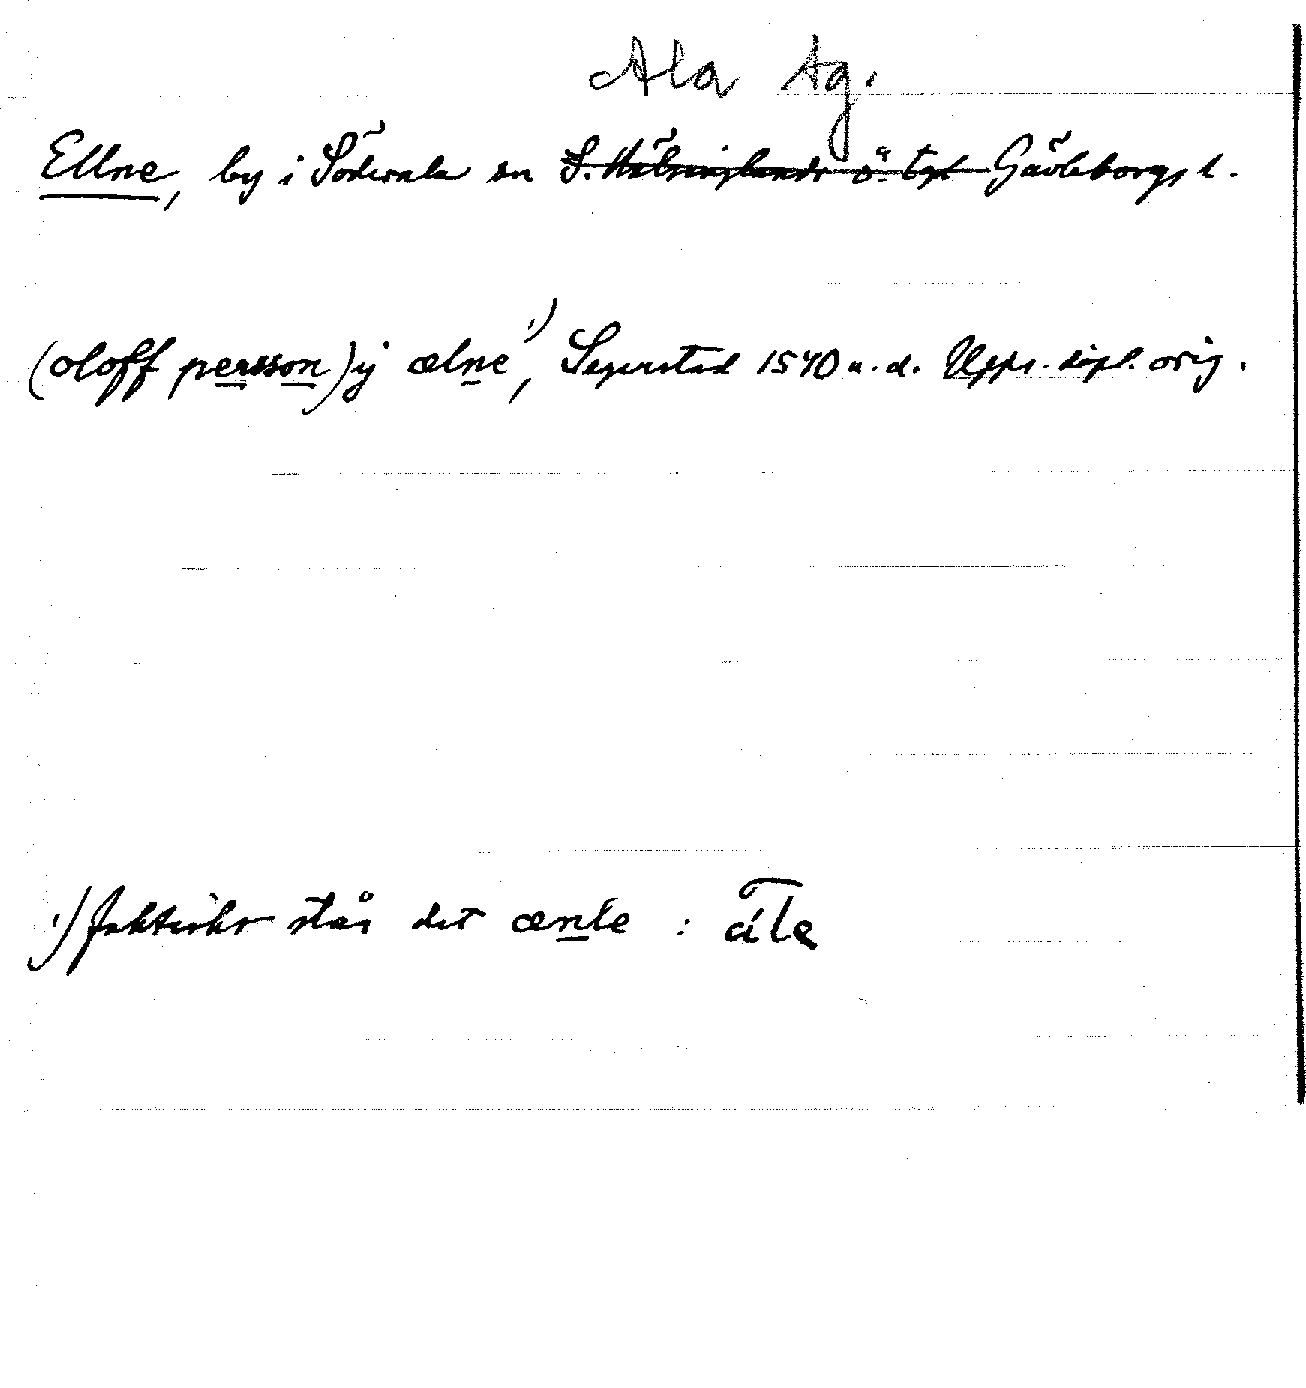 Ala tg.
Ellne, by i Söderala sn S. Hälsinglands ö. tgl Gävleborgs l.
(oloff persson) ij ælne 1), Segerstad 1540 u. d. Upps. dipl. orig.
1) faktiskt står det ænle : āle